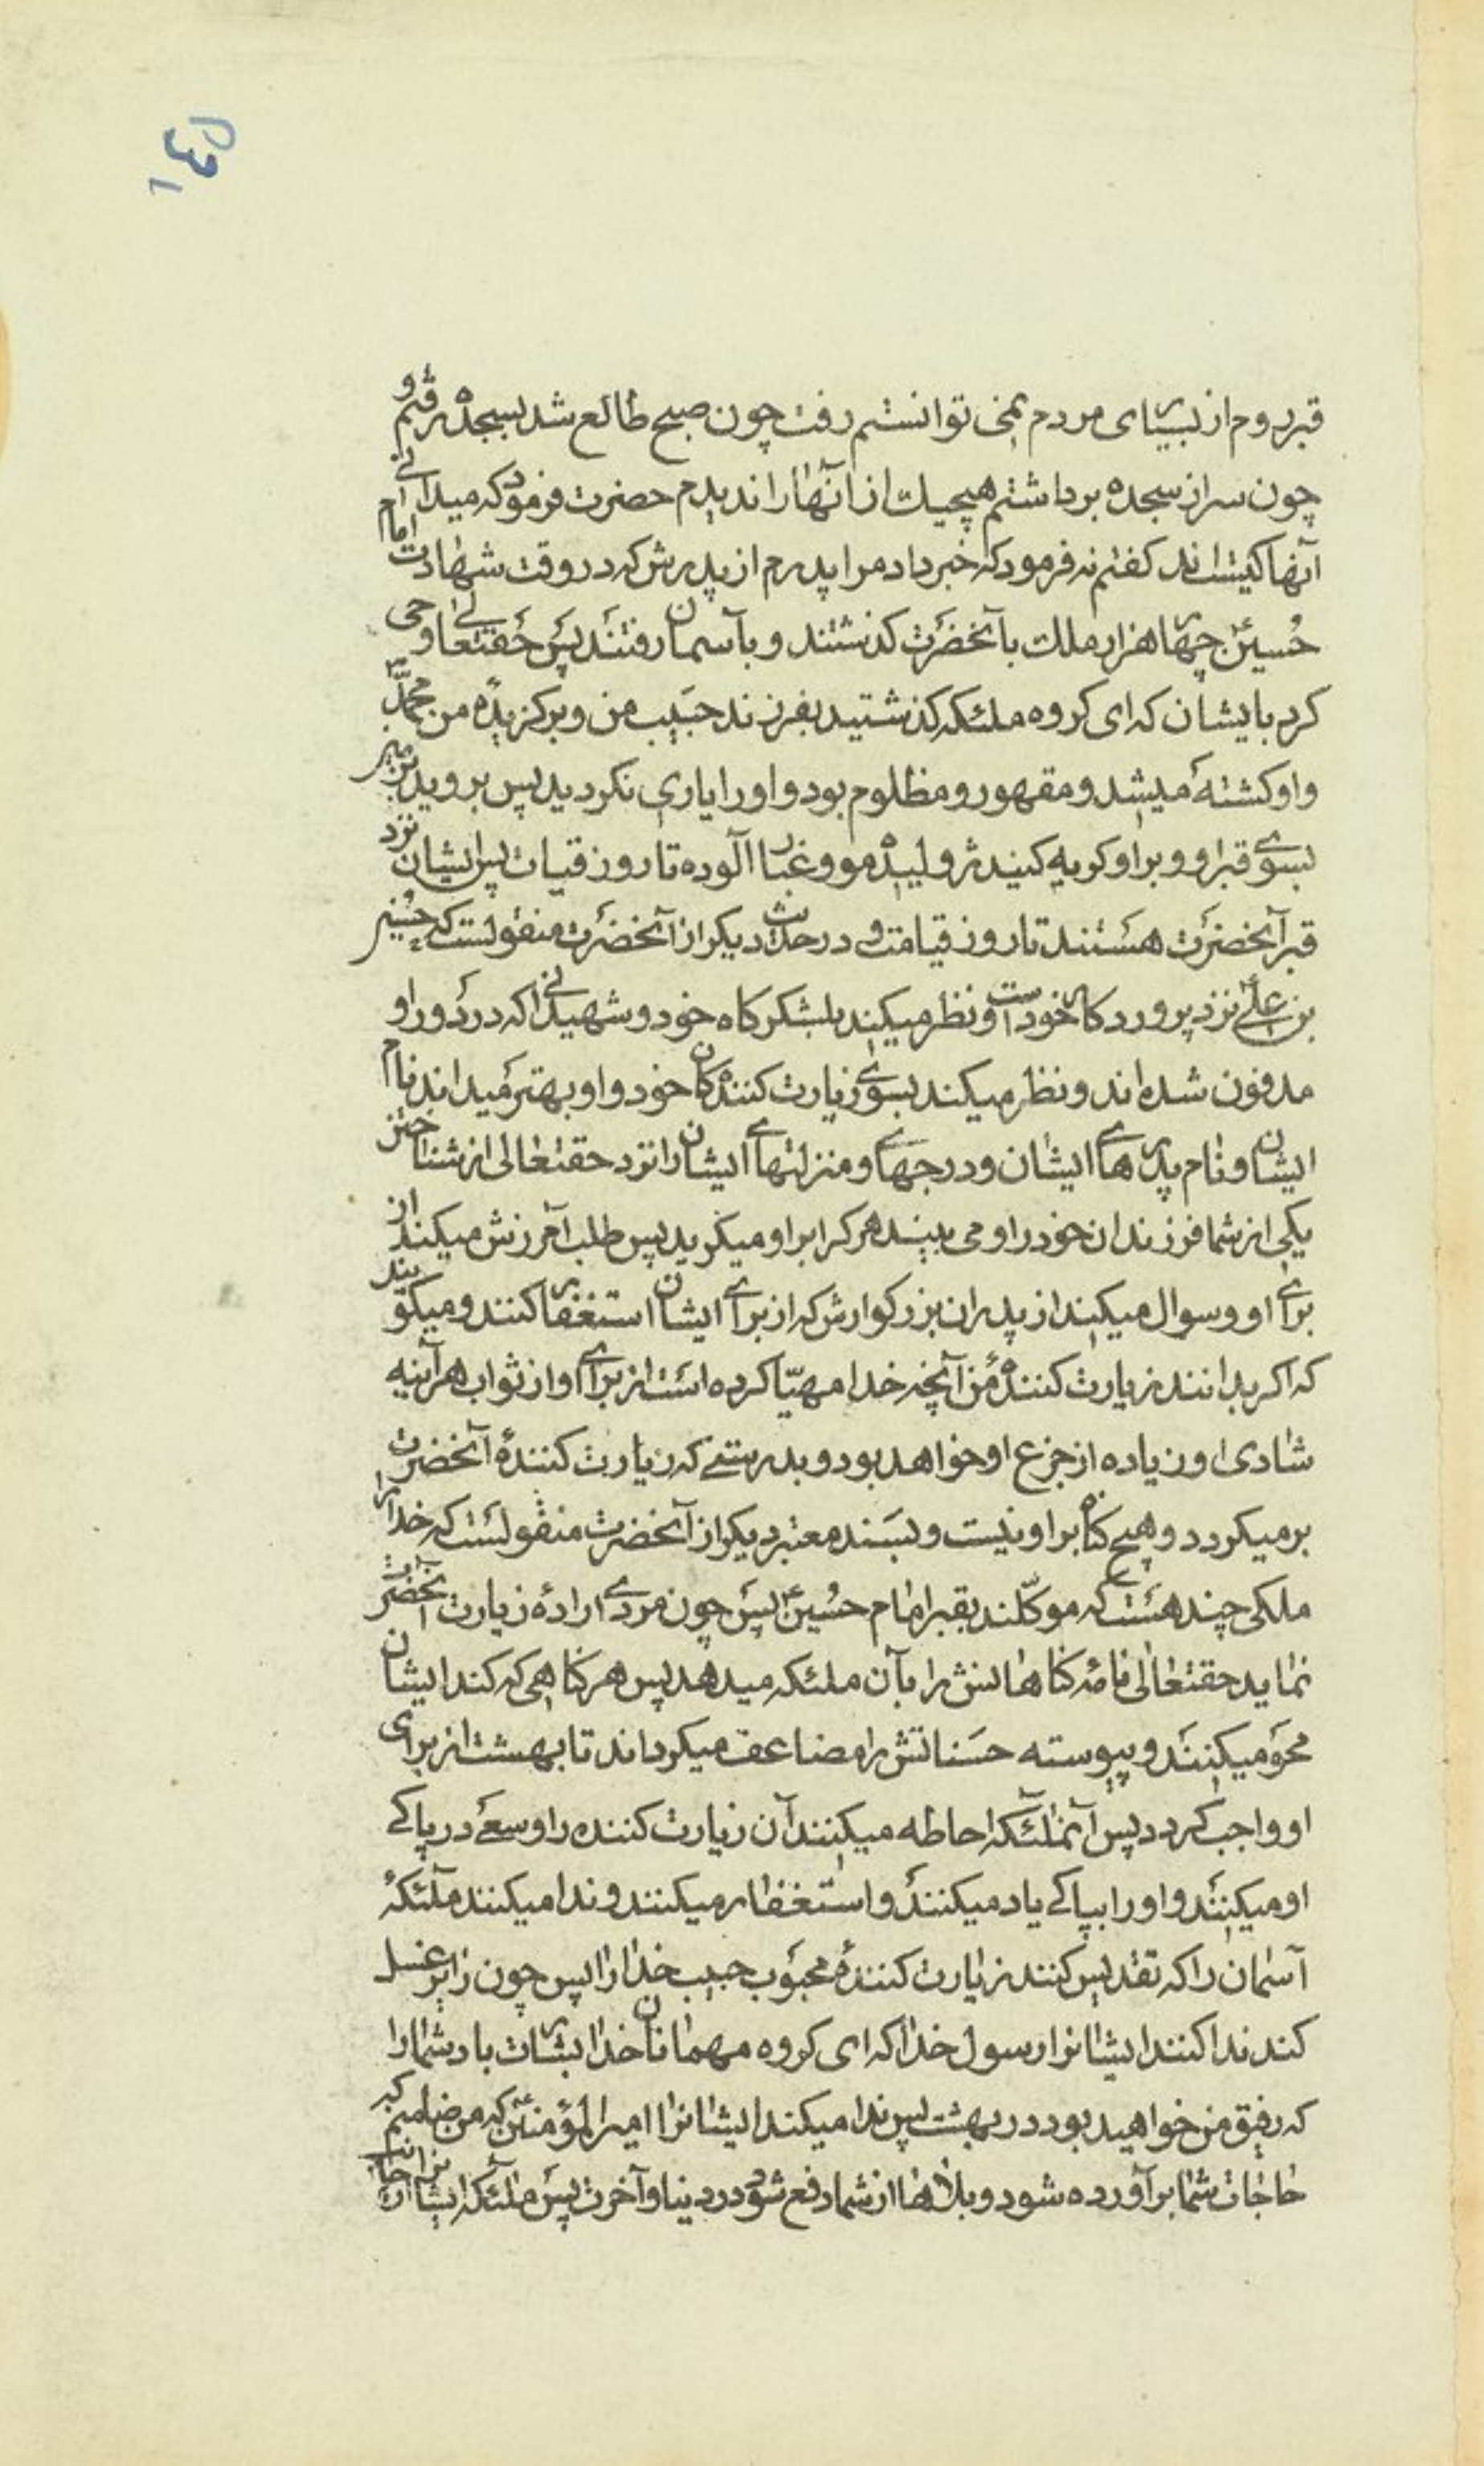 ۱۴۵
قبر روم از بسیاری مردم نمی توانستم رفت چون صبح طالع شد بسجده رفتم و
چون سر از سجده برداشتم هیچیك از آنها را ندیدم حضرت فرمود که میدانی
آنها کیستاند کفتم نه فرمود که خبر داد مرا پدرم از پدرش که در وقت شهادت امام
حُسین ع چهار هزار ملك بآنحضرت کذشتند و بآسمان رفتند پس حقتعالی وحی
کرد بایشان که ای کروه ملئکه کذشتید بفرزند حبیب من و برکزیدهٔ من محمّد
و او کشته میشد و مقهور و مظلوم بود و او را یاری نکردید پس بروید بزمین
بسوی قبر او و بر او کریه کنید ژولیده مو و غبار آلوده تا روز قیامت پس ایشان نزد
قبر آنحضرت هستند تا روز قیامت و در حدیث دیکر از آنحضرت منقولست که حسین
بن علی ع نزد پروردکار خود است و نظر میکند بلشکرکاه خود و شهیدانی را که در دور او
مدفون شده اند و نظر میکند بسوی زیارت کنندهکان خود و او بهتر میداند نام
ایشان و نام پدرهای ایشان و درجهای و منزلتهای ایشان را نزد حقتعالی از شناختن
یکی از شما فرزندان خود را و می بیند هر کرا بر او میکرید پس طلب آمرزش میکند از
برای او و سوال میکند از پدران بزرکوارش که از برای ایشان استغفار کنند و میکویند
که اکر بدانند زیارت کنندهٔ من آنچه خدا مهیّا کرده است از برای او از ثواب هر آینه
شادی او زیاده از جزع او خواهد بود و بدرستی که زیارت کنندهٔ آنحضرت
برمیکردد و هیچ کناه بر او نیست و بسند معتبر دیکر از آنحضرت منقولست که خدا را
ملکی چند هست که موکّلند بقبر امام حُسین ع پس چون مردی ارادهٔ زیارت آنحضرت
نماید حقتعالی نامه کناهانش را بآن ملئکه میدهد پس هر کناهی که کند ایشان
محو میکنند و پیوسته حسناتش را مضاعف میکرداند تا بهشت از برای
او واجب کردد پس آنملئکه احاطه میکنند آن زیارت کننده را و سعی در پاکی
او میکنند و او را بپاکی یاد میکنند و استغفار میکنند و ندا میکنند ملئکهٔ
آسمان را که تقدیس کنند زیارت کنندهٔ محبوب حبیب خدا را پس چون زایر غسل
کند ندا کنند ایشانرا رسول خدا که ای کروه مهمانان خدا بشارت باد شما را
که رفیق من خواهید بود در بهشت پس ندا میکند ایشانرا امیرالمؤمنین ع که من ضامنم که
حاجات شما برآورده شود و بلاها از شما دفع شود در دنیا و آخرت پس ملئکه ایشانرا